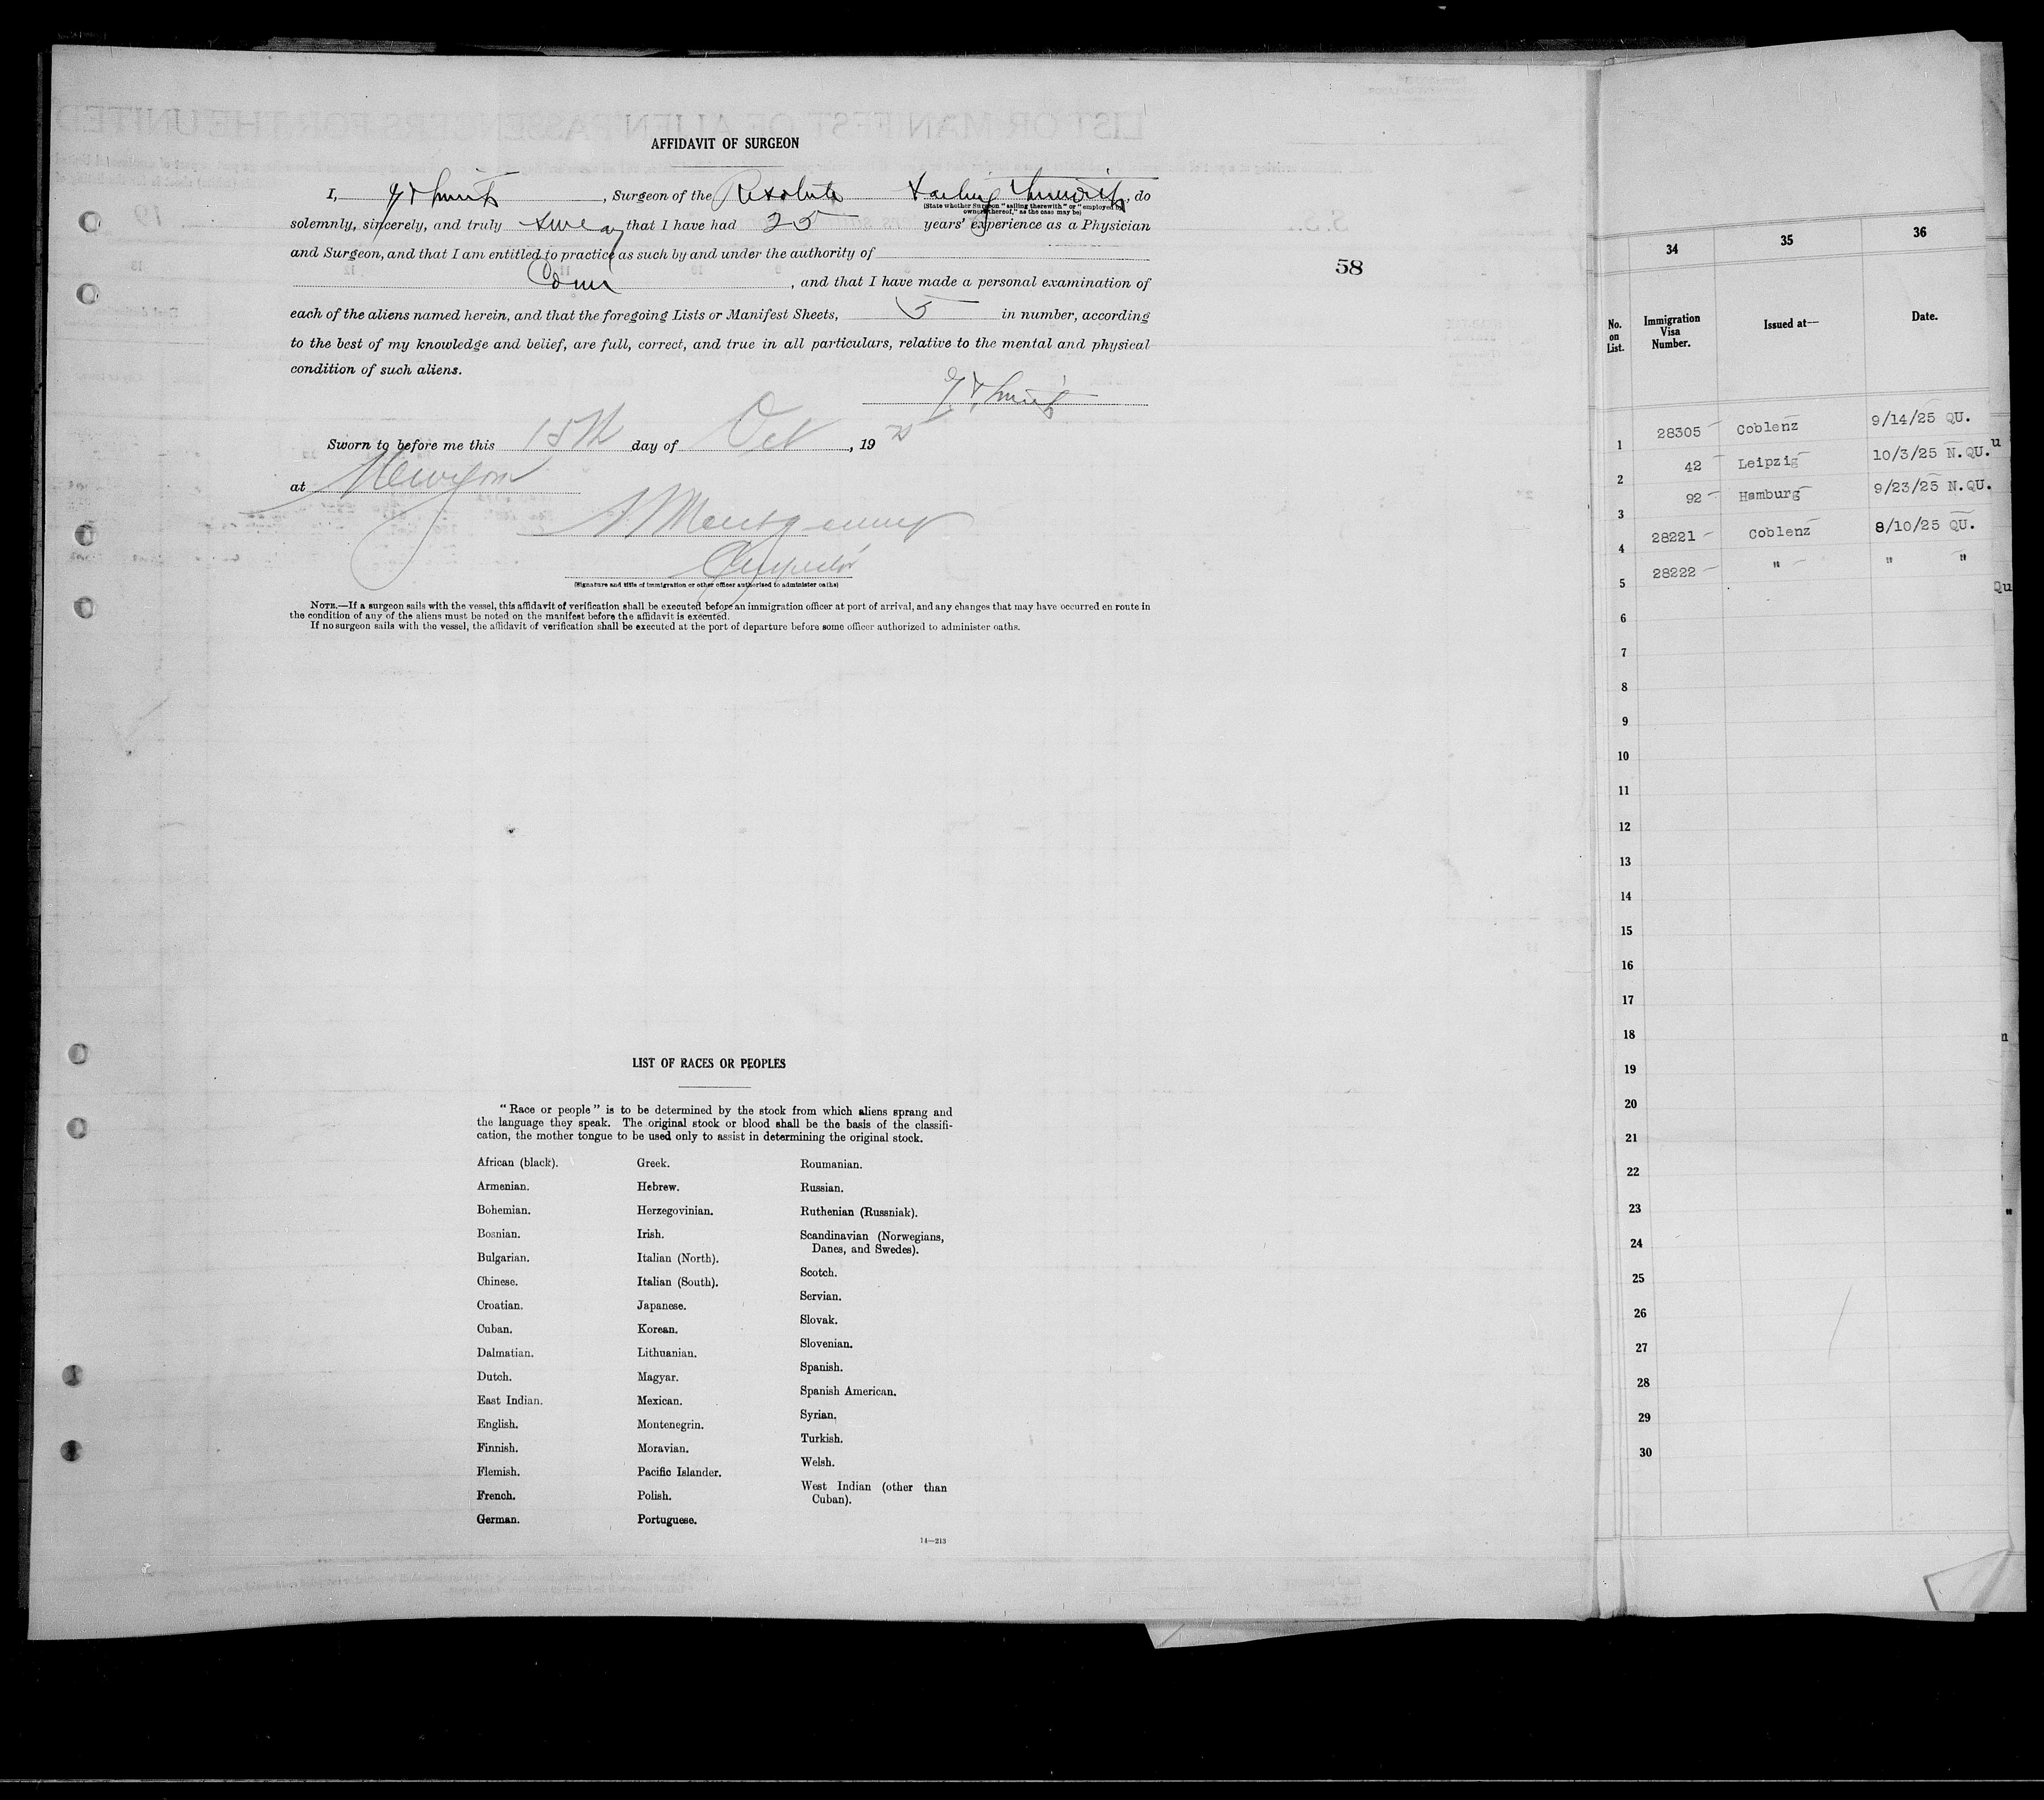 AFFIDAVIT OF SURGEON
I, , Surgeon of the Resolute sailing therewith, do
(State whether Surgeon "sailing therewith" or "employed by
owners thereof," as the case may be)
solemnly, sincerely, and truly swear that I have had 25 years' experience as a Physician
and Surgeon, and that I am entitled to practice as such by and under the authority of
, and that I have made a personal examination of
each of the aliens named herein, and that the foregoing Lists or Manifest Sheets, 5 in number, according
to the best of my knowledge and belief, are full, correct, and true in all particulars, relative to the mental and physical
condition of such aliens.
Sworn to before me this 15th day of Oct, 19 25
at New York
A. Montgomery
Inspector
(Signature and title of immigration or other officer authorized to administer oaths)
NOTE.—If a surgeon sails with the vessel, this affidavit of verification shall be executed before an immigration officer at port of arrival, and any changes that may have occurred en route in
the condition of any of the aliens must be noted on the manifest before the affidavit is executed.
If no surgeon sails with the vessel, the affidavit of verification shall be executed at the port of departure before some officer authorized to administer oaths.
58
LIST OF RACES OR PEOPLES
"Race or people" is to be determined by the stock from which aliens sprang and
the language they speak. The original stock or blood shall be the basis of the classifi-
cation, the mother tongue to be used only to assist in determining the original stock.
African (black).
Armenian.
Bohemian.
Bosnian.
Bulgarian.
Chinese.
Croatian.
Cuban.
Dalmatian.
Dutch.
East Indian.
English.
Finnish.
Flemish.
French.
German.
Greek.
Hebrew.
Herzegovinian.
Irish.
Italian (North).
Italian (South).
Japanese.
Korean.
Lithuanian.
Magyar.
Mexican.
Montenegrin.
Moravian.
Pacific Islander.
Polish.
Portuguese.
Roumanian.
Russian.
Ruthenian (Russniak).
Scandinavian (Norwegians,
Danes, and Swedes).
Scotch.
Servian.
Slovak.
Slovenian.
Spanish.
Spanish American.
Syrian.
Turkish.
Welsh.
West Indian (other than
Cuban).
14—213
34 35 36
No. on List. Immigration Visa Number. Issued at— Date.
1 28305 Coblenz 9/14/25 QU.
2 42 Leipzig 10/3/25 N.QU.
3 92 Hamburg 9/23/25 N.QU.
4 28221 Coblenz 8/10/25 QU.
5 28222 " " "
6
7
8
9
10
11
12
13
14
15
16
17
18
19
20
21
22
23
24
25
26
27
28
29
30